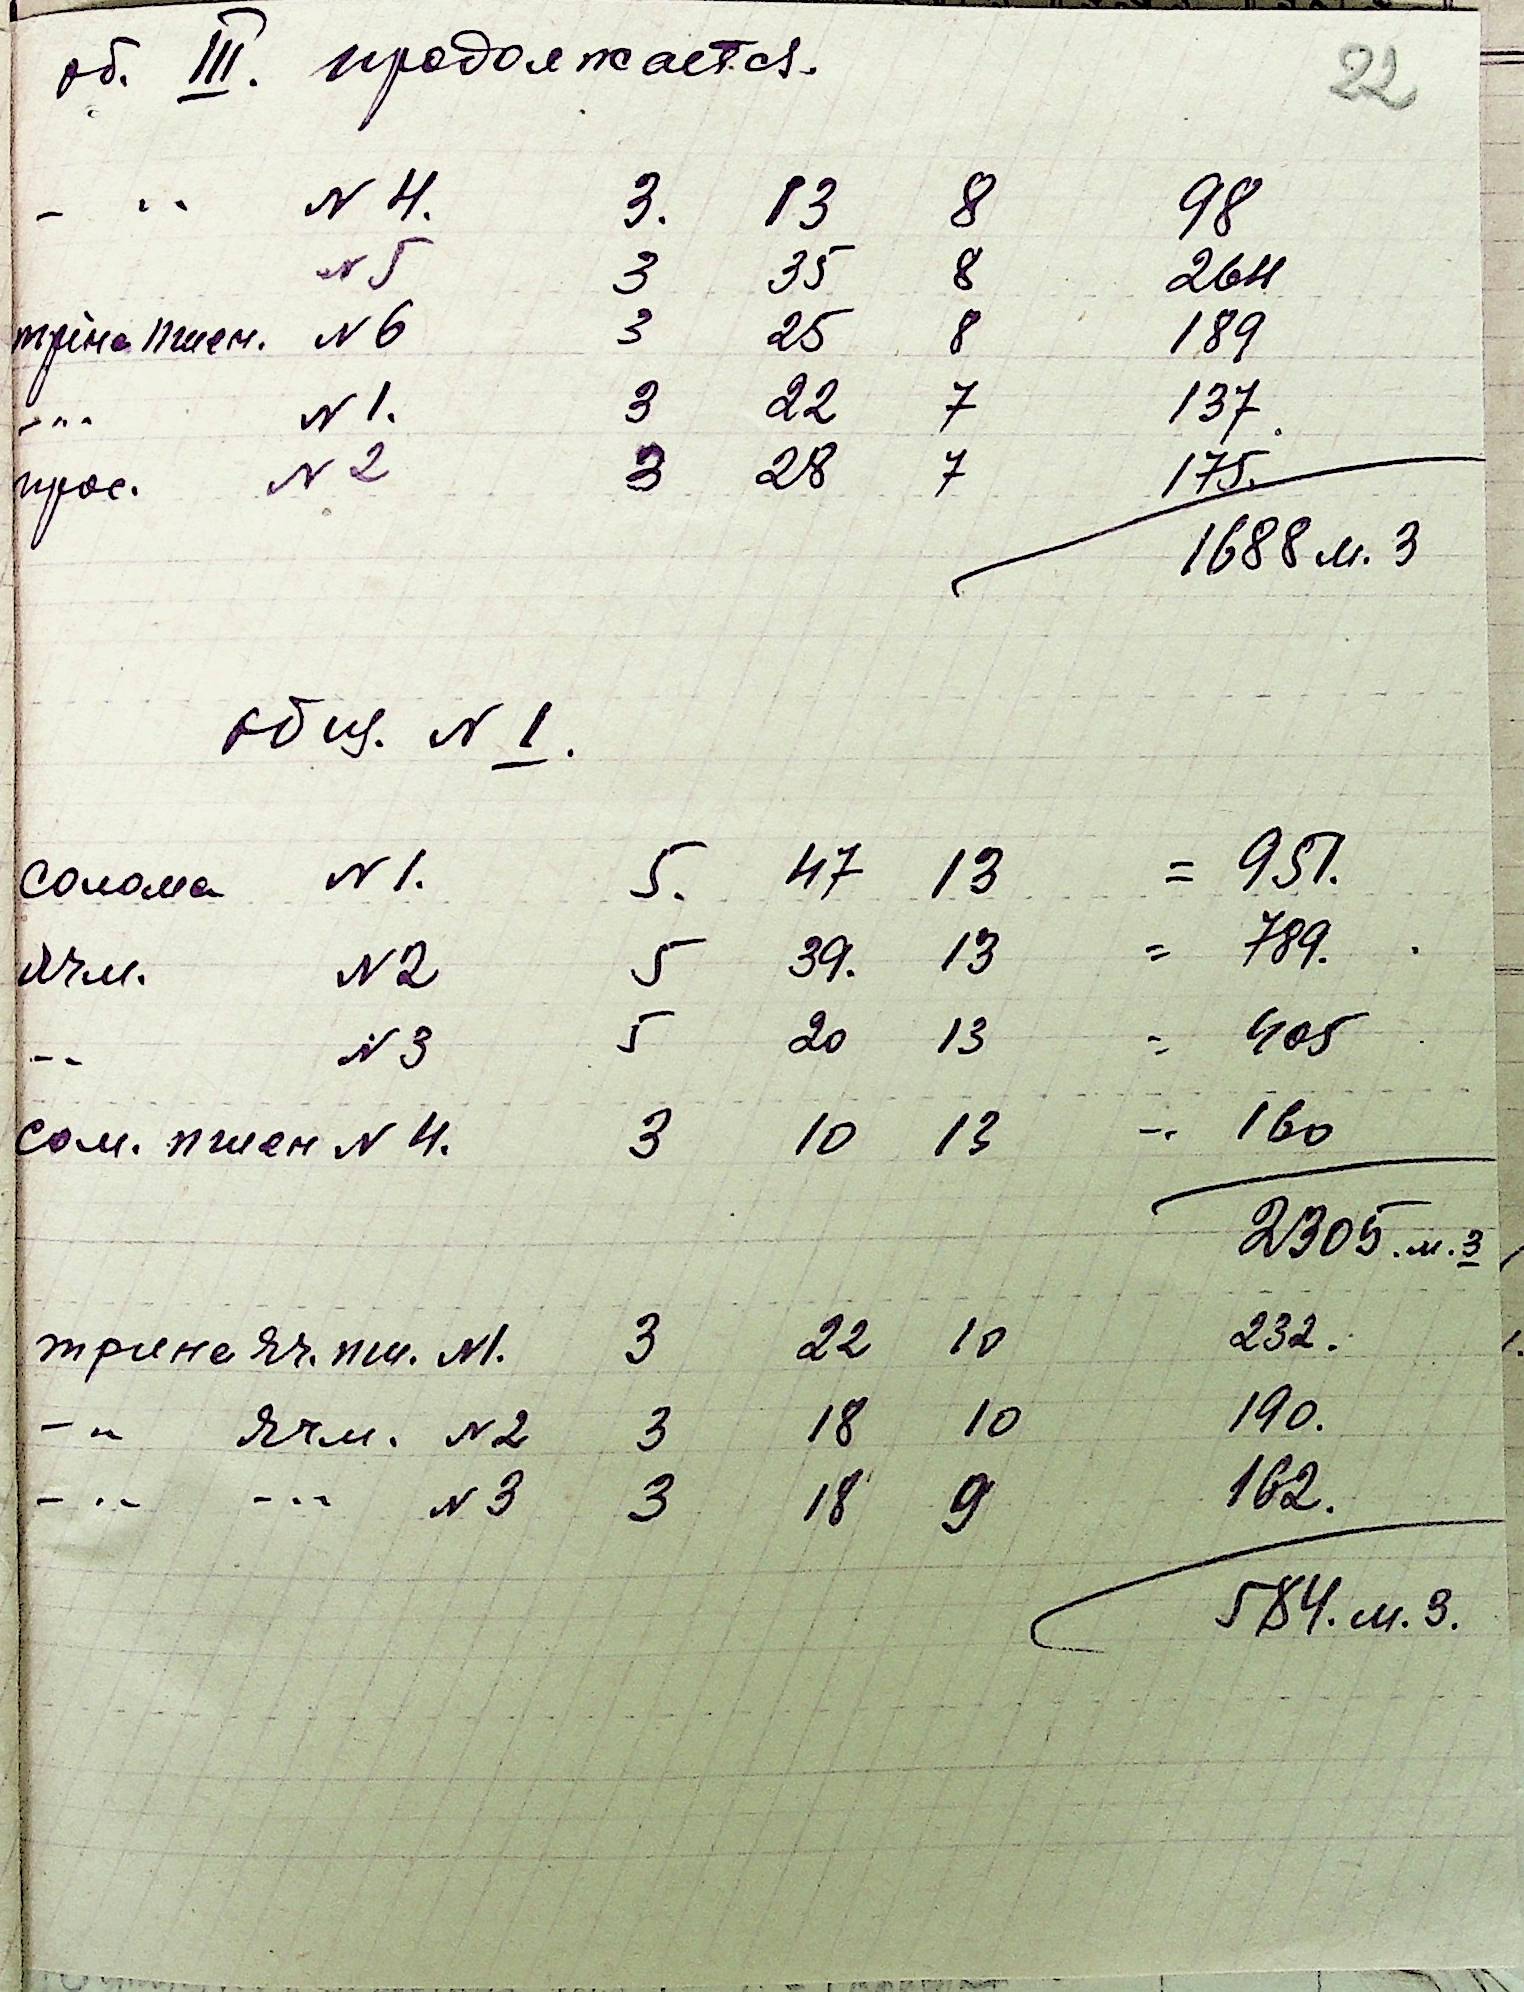 об. III. продолжается.
22
- ·· N 4. 3. 13 8 98
N 5 3 35 8 264
тріна пшен. N 6 3 25 8 189
-··· N 1. 3 22 7 137.
прос. N 2 3 28 7 175.
1688 м. 3
общ. N 1.
солома N 1. 5. 47 13 = 951.
ячм. N 2 5 39. 13 = 789.
-- N 3 5 20 13 = 405
сом. пшен N 4. 3 10 13 -·· 160
2305. м. 3
трина яч. пш. N1. 3 22 10 232.
-·· ячм. N 2 3 18 10 190.
-··- -··· N 3 3 18 9 162.
584. м. 3.